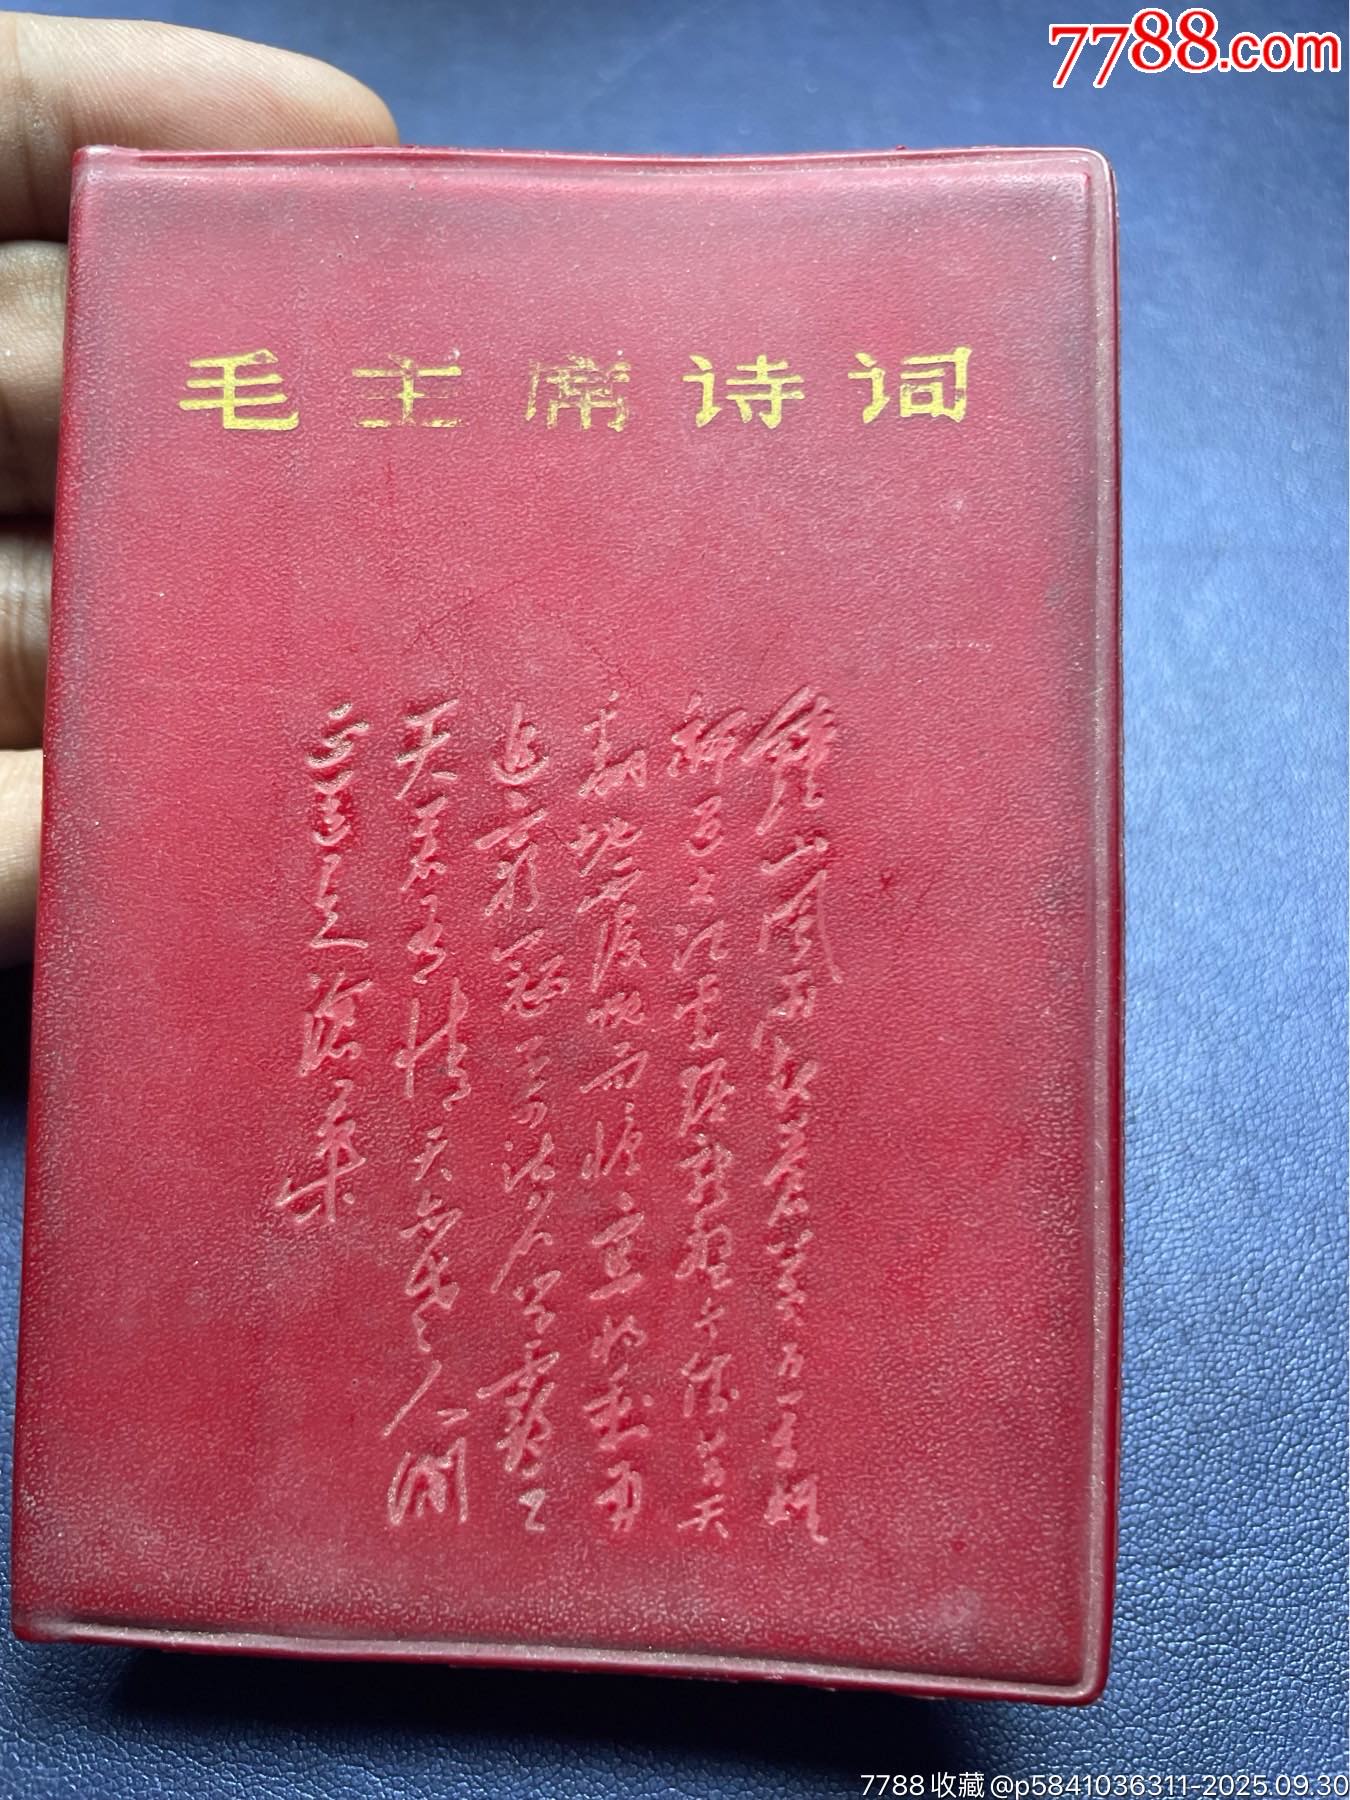 7788.com
毛主席诗词
鐘山風雨起蒼黄百万雄
師过大江虎踞龍盤今勝昔天
翻地覆慨而慷宜将剩勇
追穷寇不可沽名学霸王
天若有情天亦老人間
正道是滄桑
7788收藏@p5841036311-2025.09.30